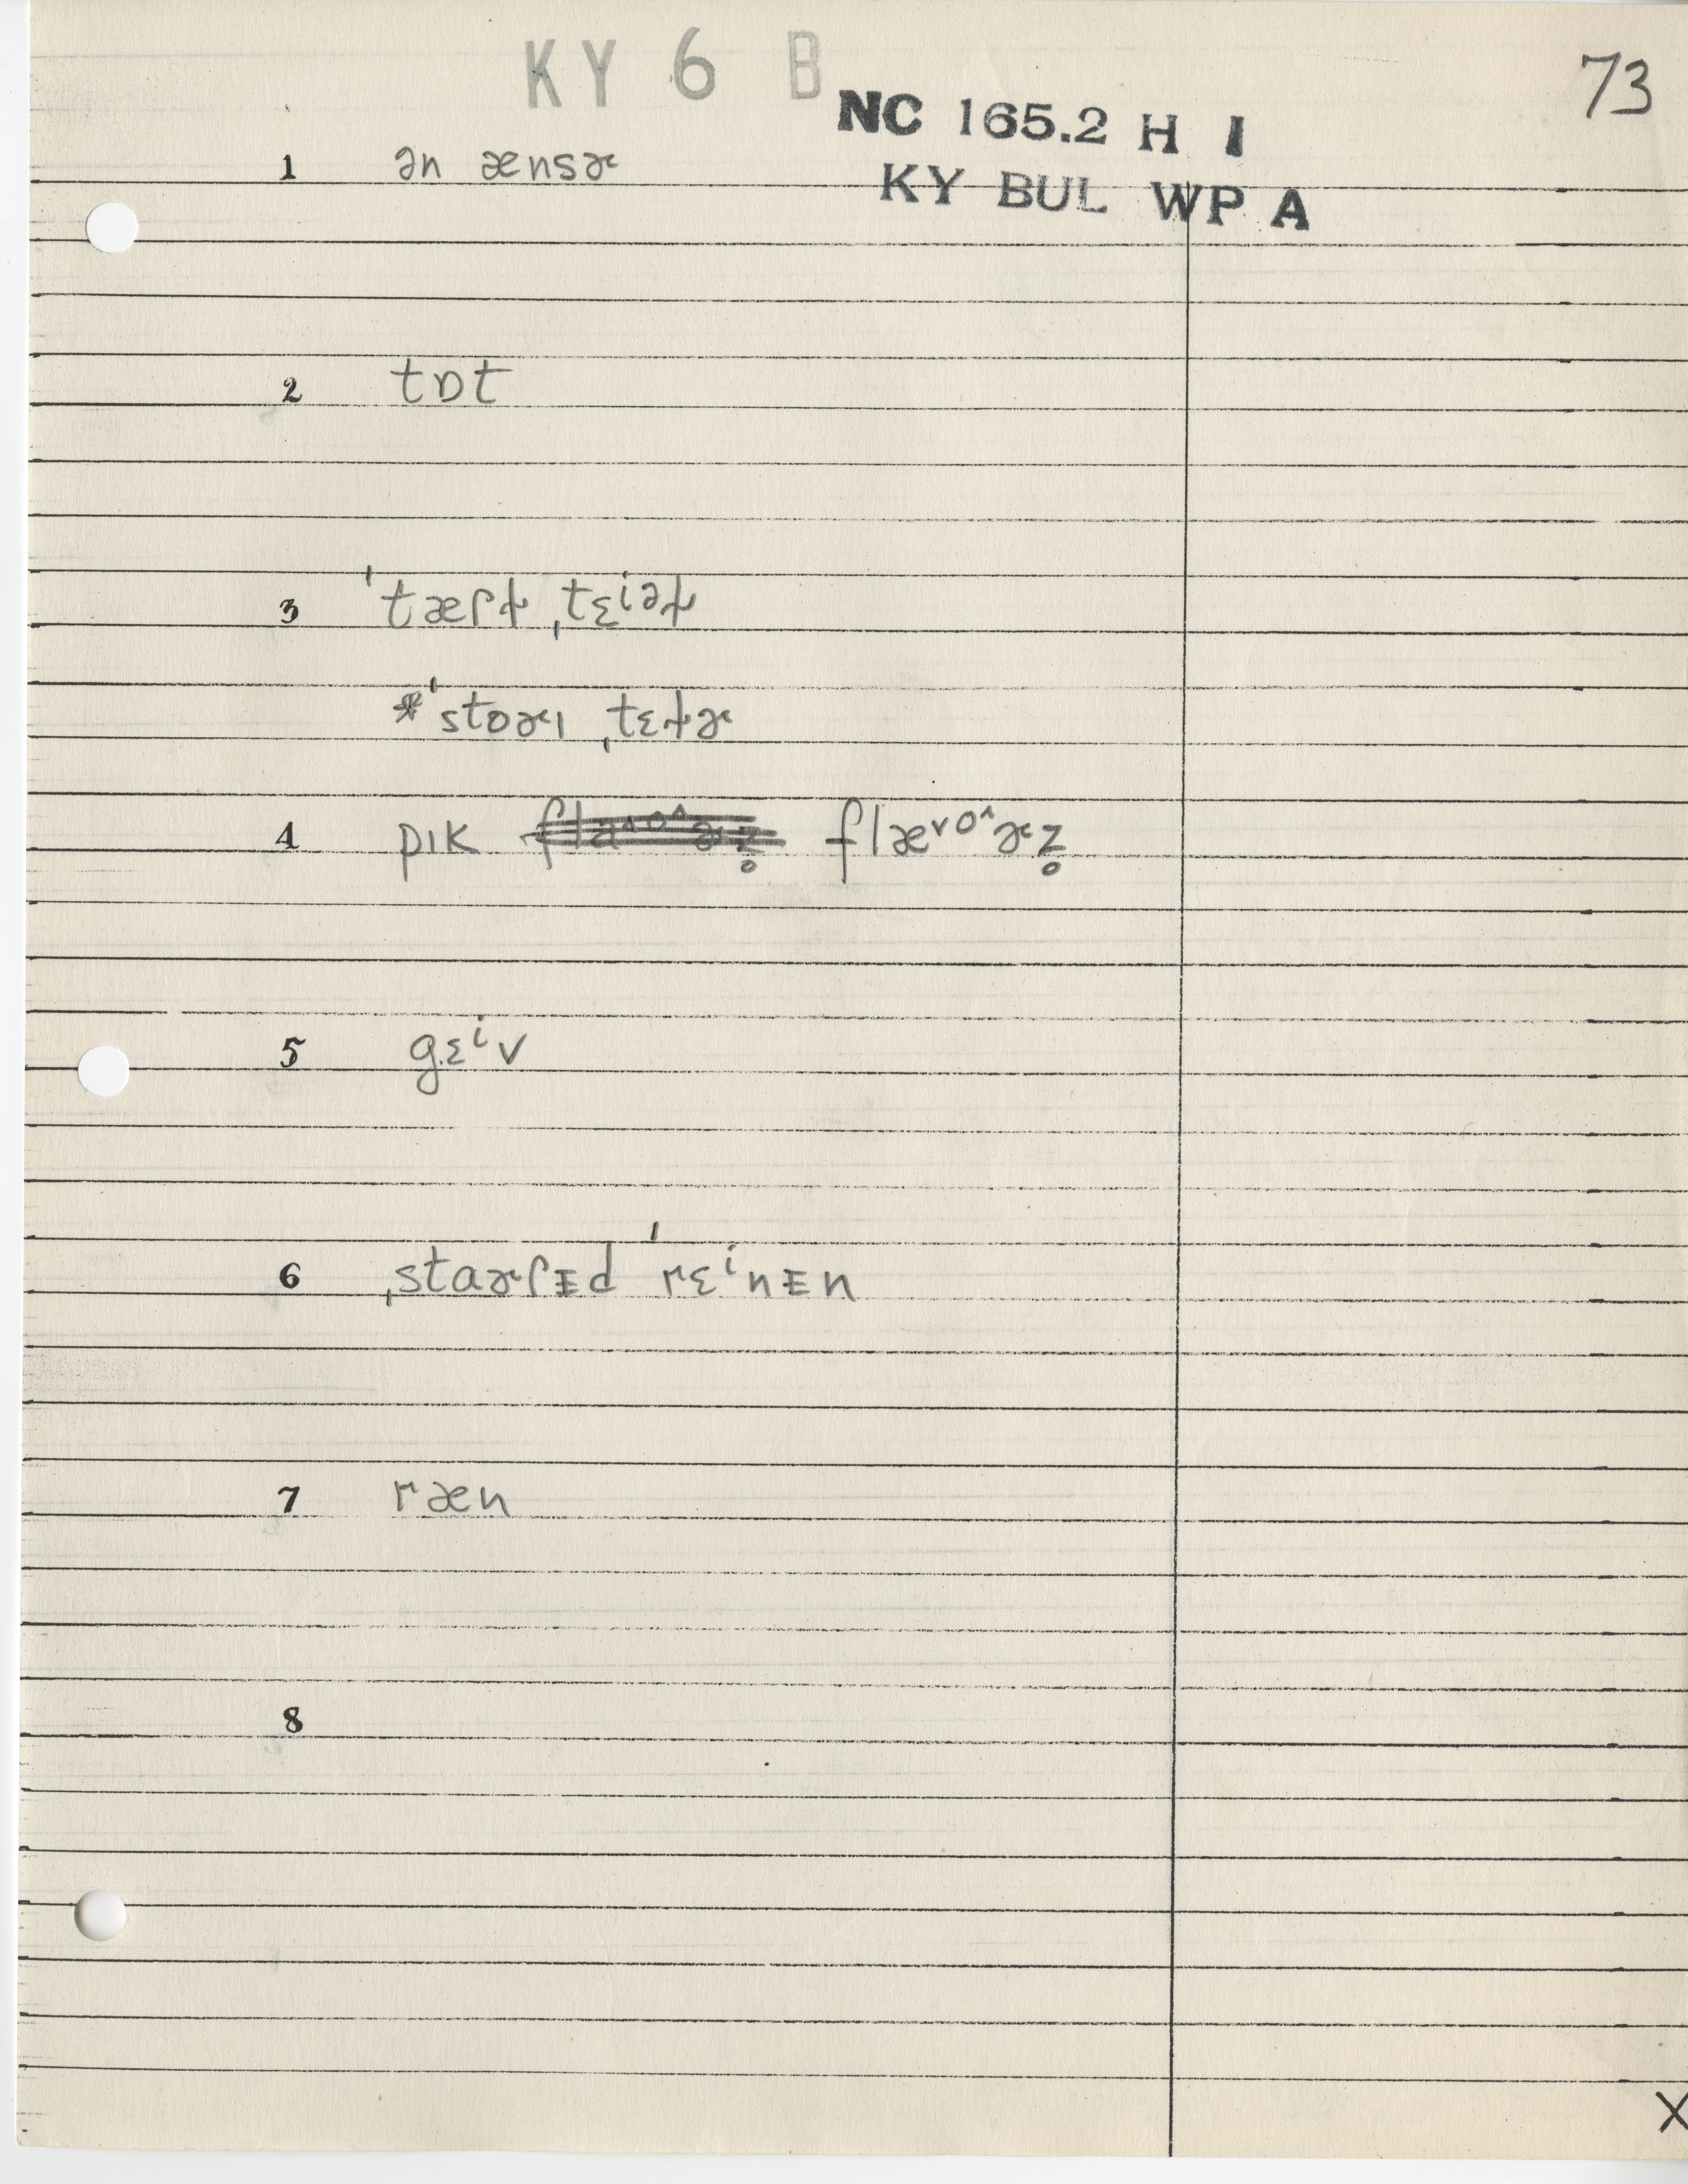 KY 6 B
73
NC 165.2 H I
KY BUL WP A
1 ən ænsɚ
2 tɒt
3 ˈtæɾɫ ˌtɛⁱəɫ
*ˈstoɚɪ ˌtɛɫɚ
4 pɪk flæ˅ᵒ˄ɚz̥
5 gɛⁱv
6 ˌstaɚɾᴇd ˈrɛⁱnᴇn
7 ræn
8
X